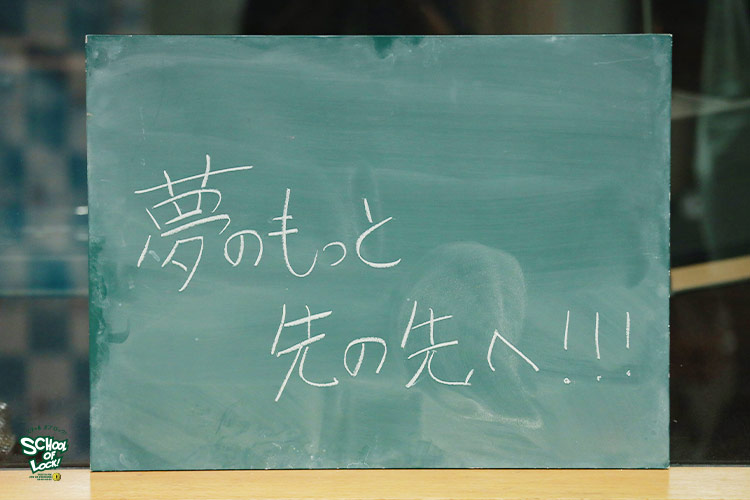 夢のもっと
先の先へ!!!
SCHOOL
OF
LOCK!